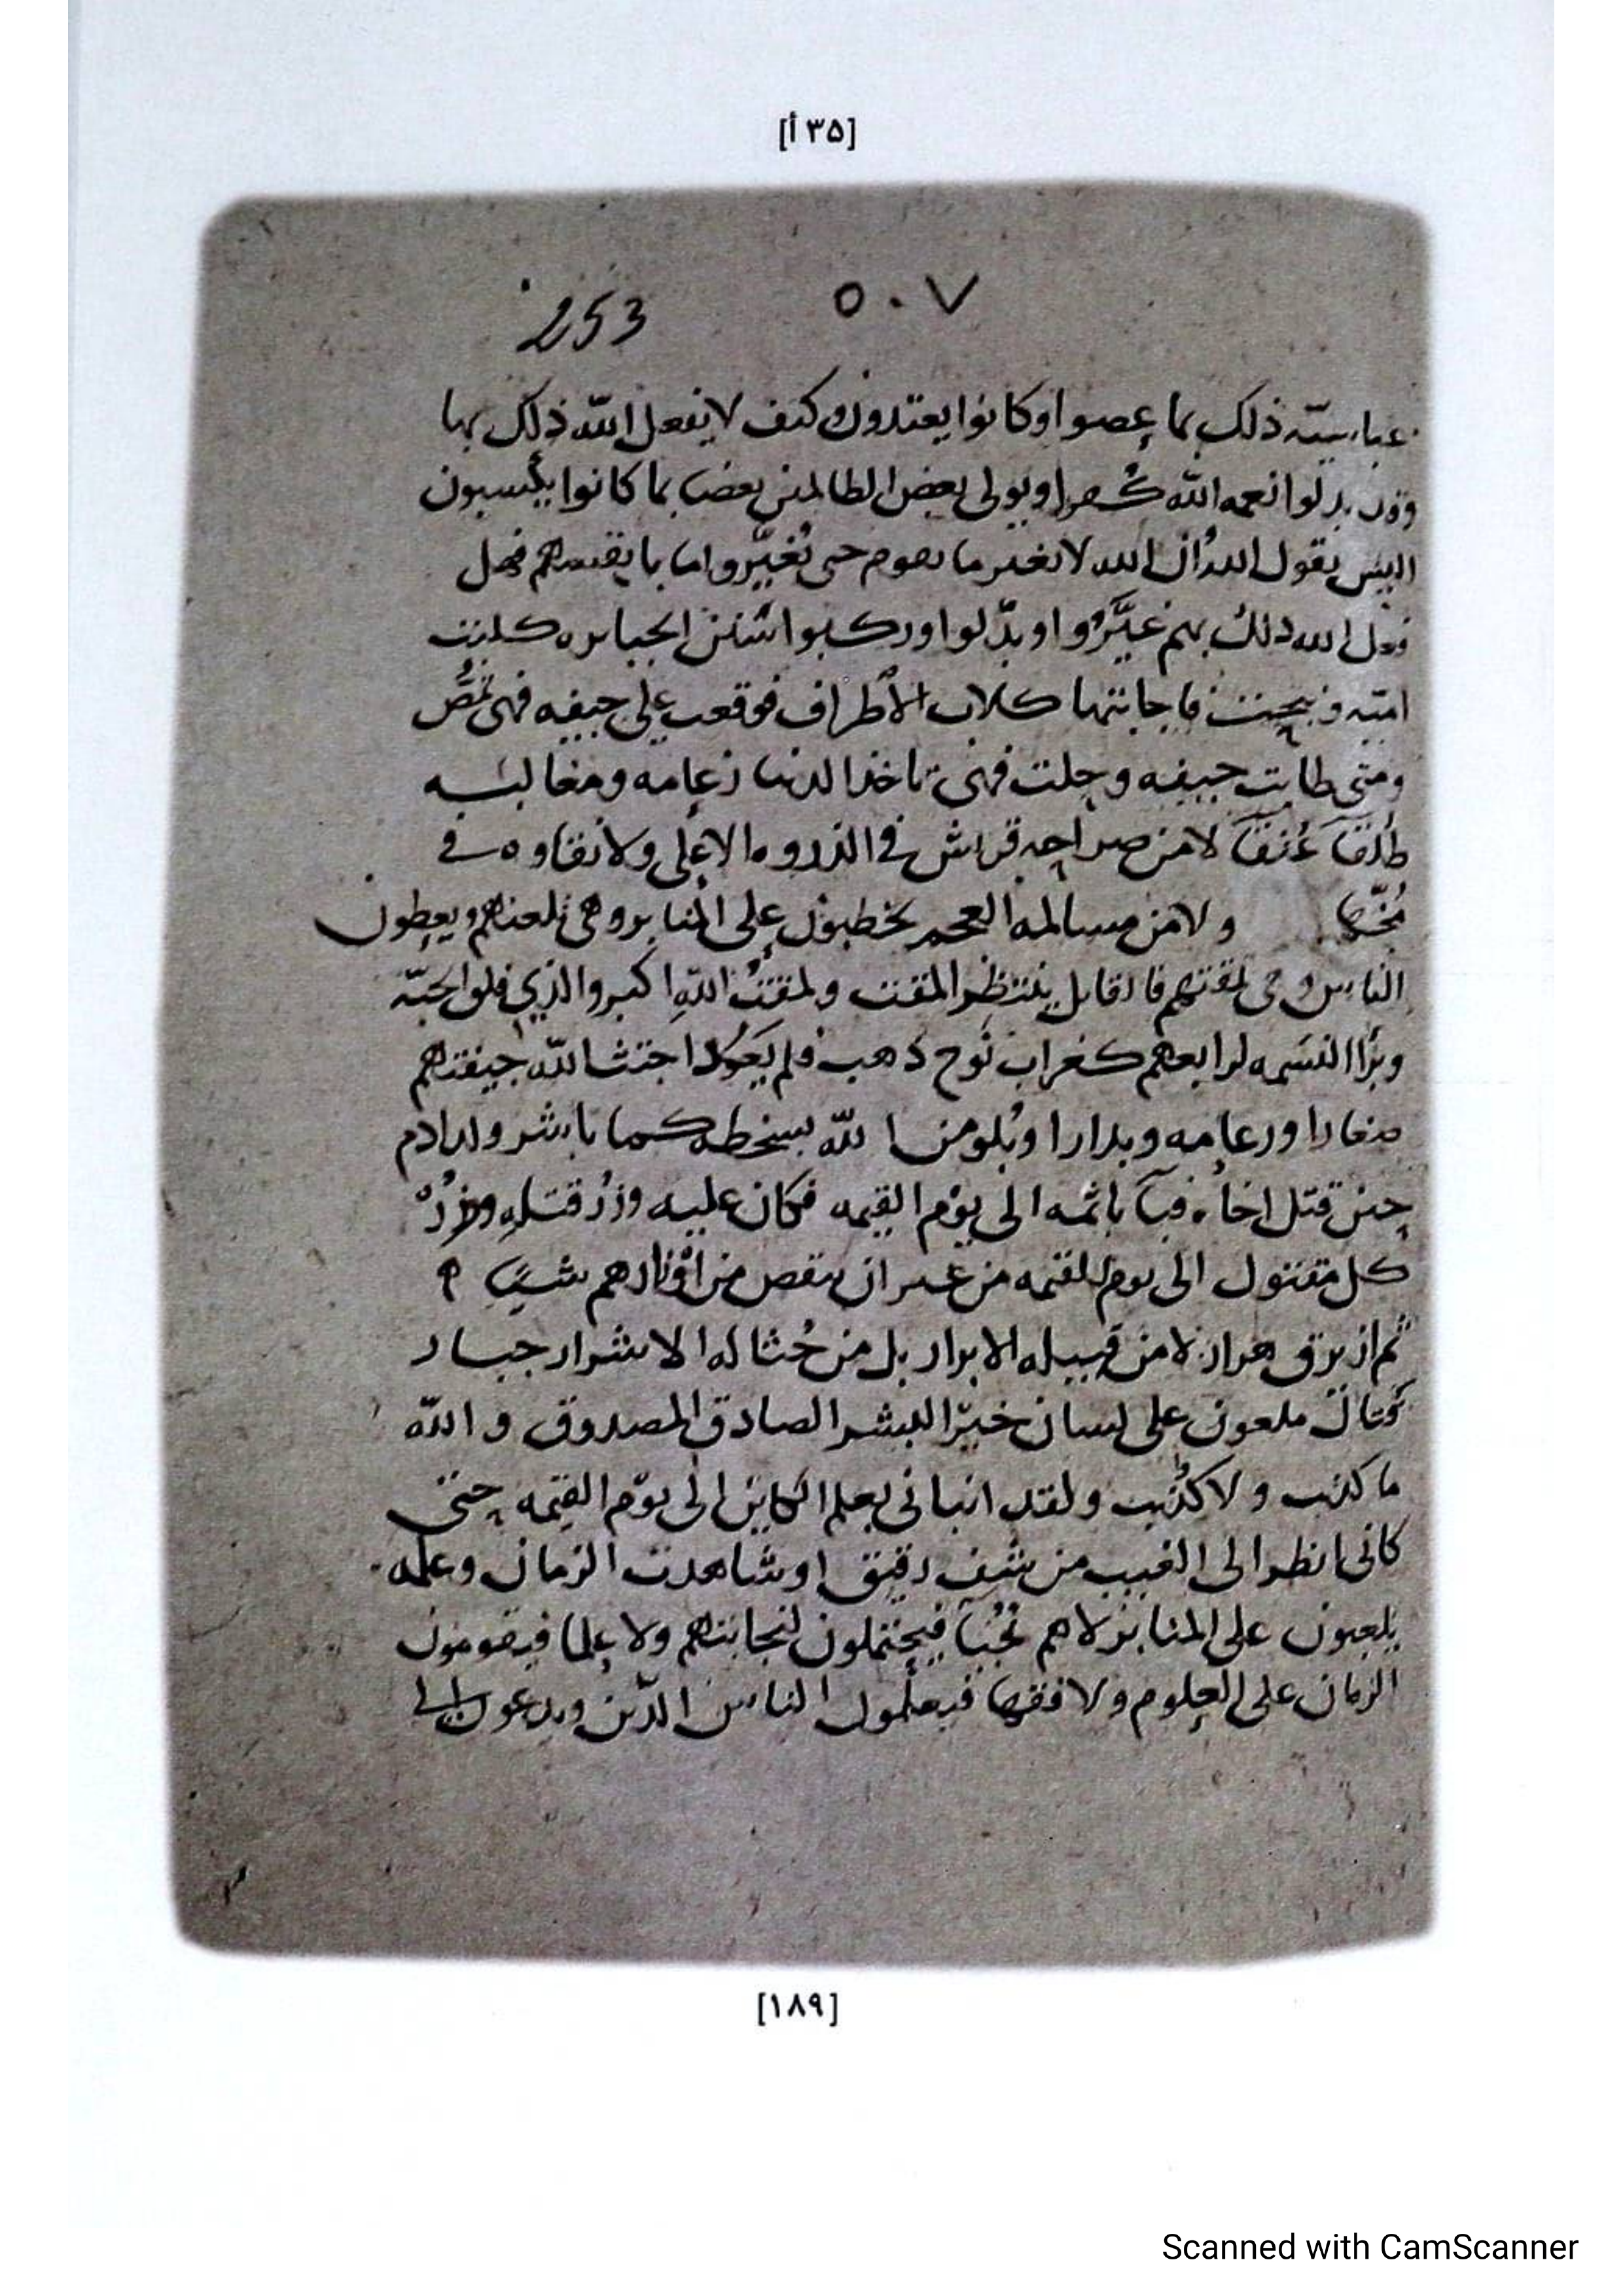 [٣٥ أ]
٥٠٧ 253
ذلك بما عصوا وكانوا يعتدون وكيف لا يفعل الله ذلك بها
وقد بدلوا نعمه الله كفرا ويولى بعض الظالمين بعضا بما كانوا يكسبون
اليس يقول الله ان الله لا يغير ما بقوم حتى يُغيّروا ما بانفسهم فهل
فعل الله ذلك بهم غيَّروا او بدّلوا وركبوا سنن الجبابره كلبت
اميه فاجابتها كلاب الأطراف فوقعت على جيفه فهى
ومتى طابت جيفه وحلت فهى تاخذ الدنيا زعامه ومغالبه
لا من صراحه قريش في الذروه الاعلى ولا نقاوه في
ولا من مسالمه العجم يخطبون على المنابر وهى تلعنهم ويعظون
الناس وهى تمقتهم فالقايل ينتظر المقت ولمقتُ اللهِ اكبر والذي فلق الحبّه
وبرأ النسمه لرابعهم كغراب نُوح ذهب فلم يَعُد اجتث الله جيفتهم
صغارا ورعامه وبدارا من الله بسخطه كما باشر ولد ادم
حين قتل اخاه فبآ باثمه الى يوم القيمه فكان عليه وزرُ قتله ووزرُ
كل مقتول الى يوم القيمه من غير ان ينقص من اوزارهم شيئا
ثم ازيرق هرار لا من قبيله الابرار بل من حُثاله الاشرار جبار
ملعون على لسان خير البشر الصادق المصدوق والله
ما كذبت ولا كُذّبت ولقد انبانى بعلم الكاين الى يوم القيمه حتى
كانى انظر الى الغيب من شف رقيق او شاهدت الزمان وعلمه
يلعبون على المنابر لا هم نُجُبا فيحتملون لنجابتهم ولا علما فيقومون
الزمان على العلوم ولا فقها فيعلّمون الناس الدّين ويدعون الى
[١٨٩]
Scanned with CamScanner